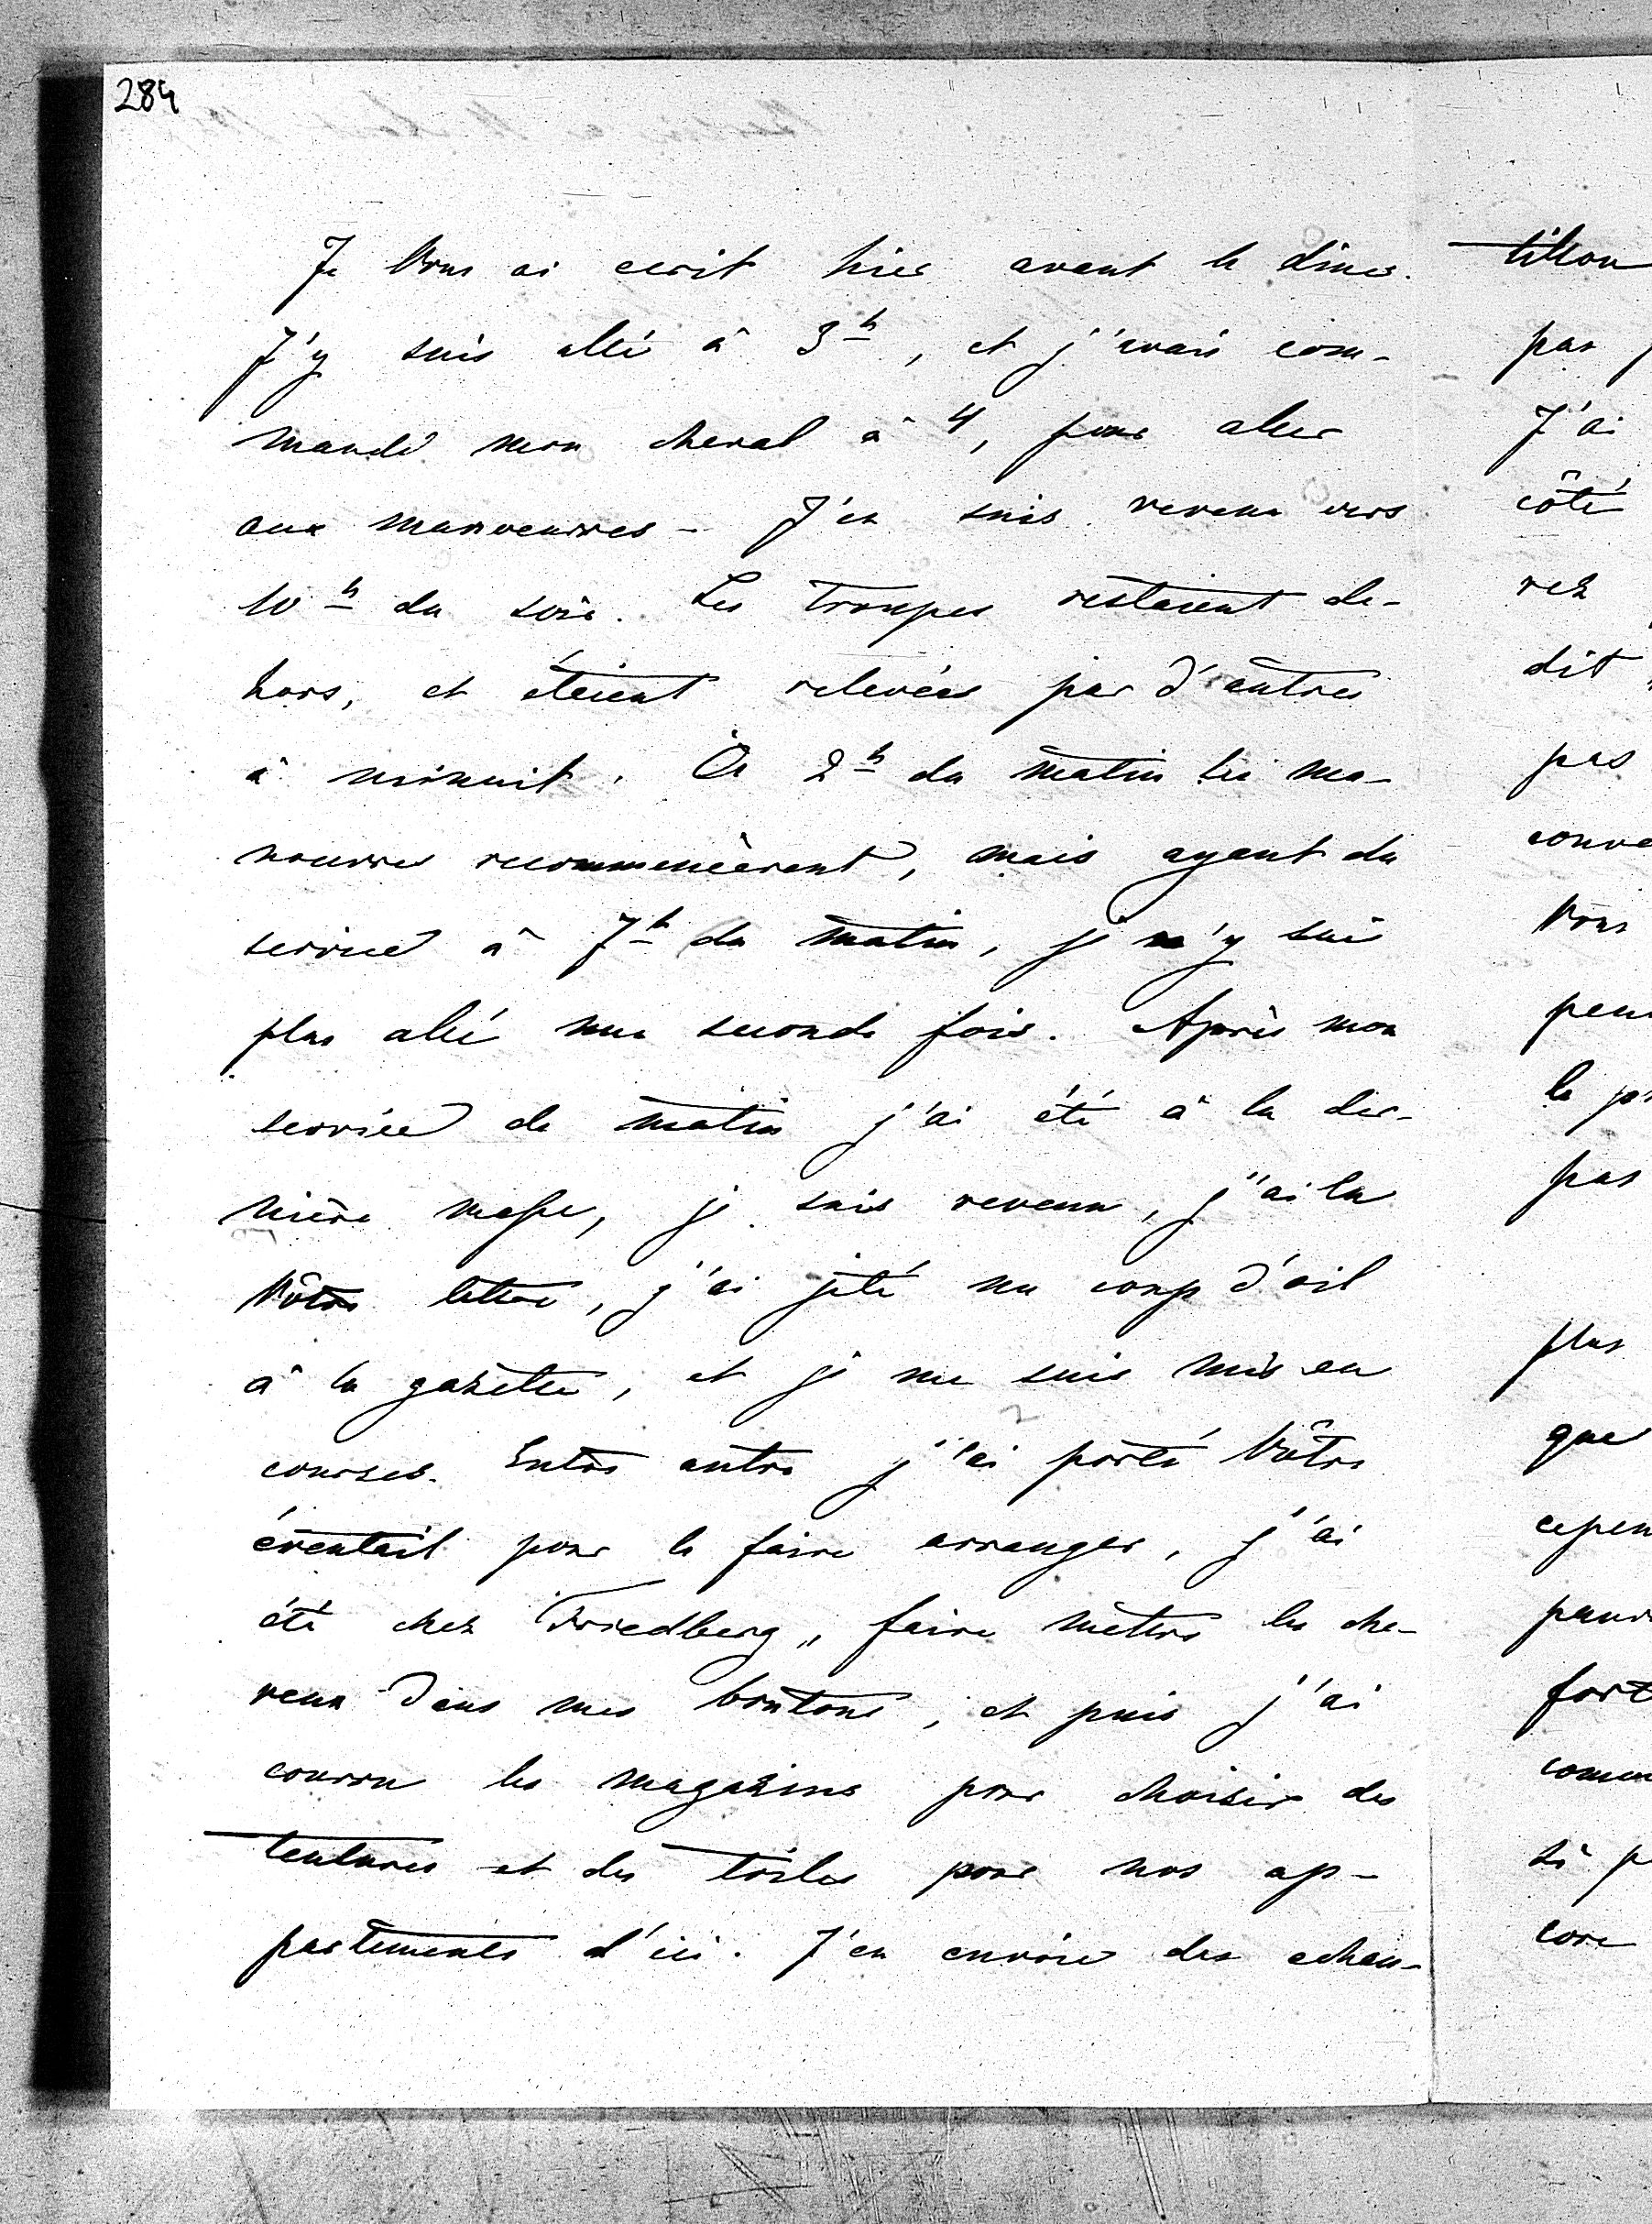 284
Je Vous ai ecrit hier avant le diner.
J'y suis allé à 3h, et j'avais com-
mandé mon cheval à 4, pour aller
aux manoeuvres - J'en suis revenu vers
10h du soir. Les troupes restaient de-
hors, et étaient relevées par d'autres
à minuit. A 2h du matin les ma-
noeuvres recommencèrent, mais ayant du
service à 7h du matin, je n'y suis
plus allé une seconde fois. Après mon
service de matin j'ai été à la der-
nière messe, je suis revenu, j'ai lu
Vôtre lettre, j'ai jeté un coup d'oeil
à la gazette, et je me suis mis en
courses. Entre autre j'ai porté Vôtre
éventail pour le faire arranger, j'ai
été chez Friedberg, faire mettre les che-
veux dans mes boutons, et puis j'ai
couru les magazins pour choisir des
tentures et des toiles pour nos ap-
partements d'ici. J'en envoie des echan-
tillon
par
J'ai
côté
rez
dit
pas
conve
Vous
peu
le pr
pas
plus
que
cepen
pauv
fort
comm
si p
core